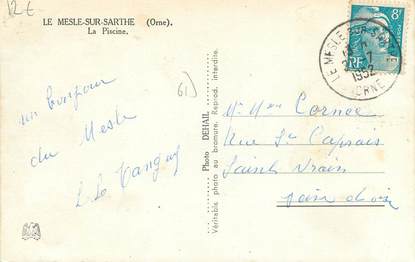 12€
LE MESLE-SUR-SARTHE (Orne).
La Piscine.
8F
POSTES
RF
LE MESLE-SUR-SARTHE
1952
ORNE
61)
un bonjour
du Mesle
L Le Tanguy
Photo DEHAIL
Véritable photo au bromure. Reprod. interdite.
Mr Mme Cornee
Rue St Caprais
Saint Vrain